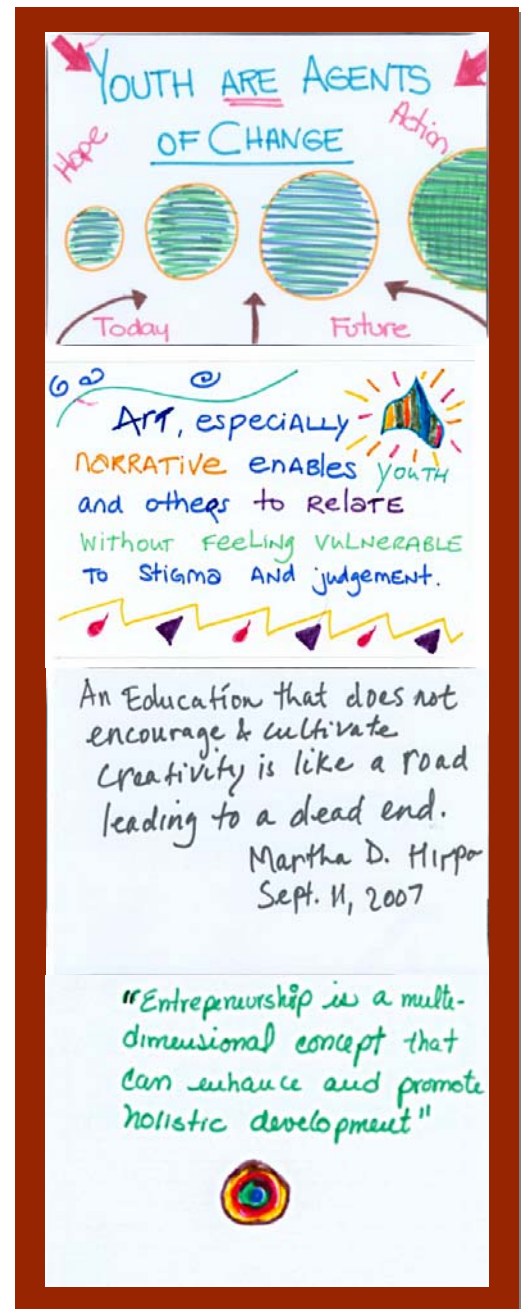 YOUTH ARE AGENTS
OF CHANGE
Hope
Action
Today
Future
Art, especially
narrative enables youth
and others to relate
without feeling vulnerable
to stigma and judgement.
An Education that does not
encourage & cultivate
creativity is like a road
leading to a dead end.
Martha D. Hippo
Sept. 11, 2007
"Entrepenurship is a multi-
dimensional concept that
can enhance and promote
holistic development"